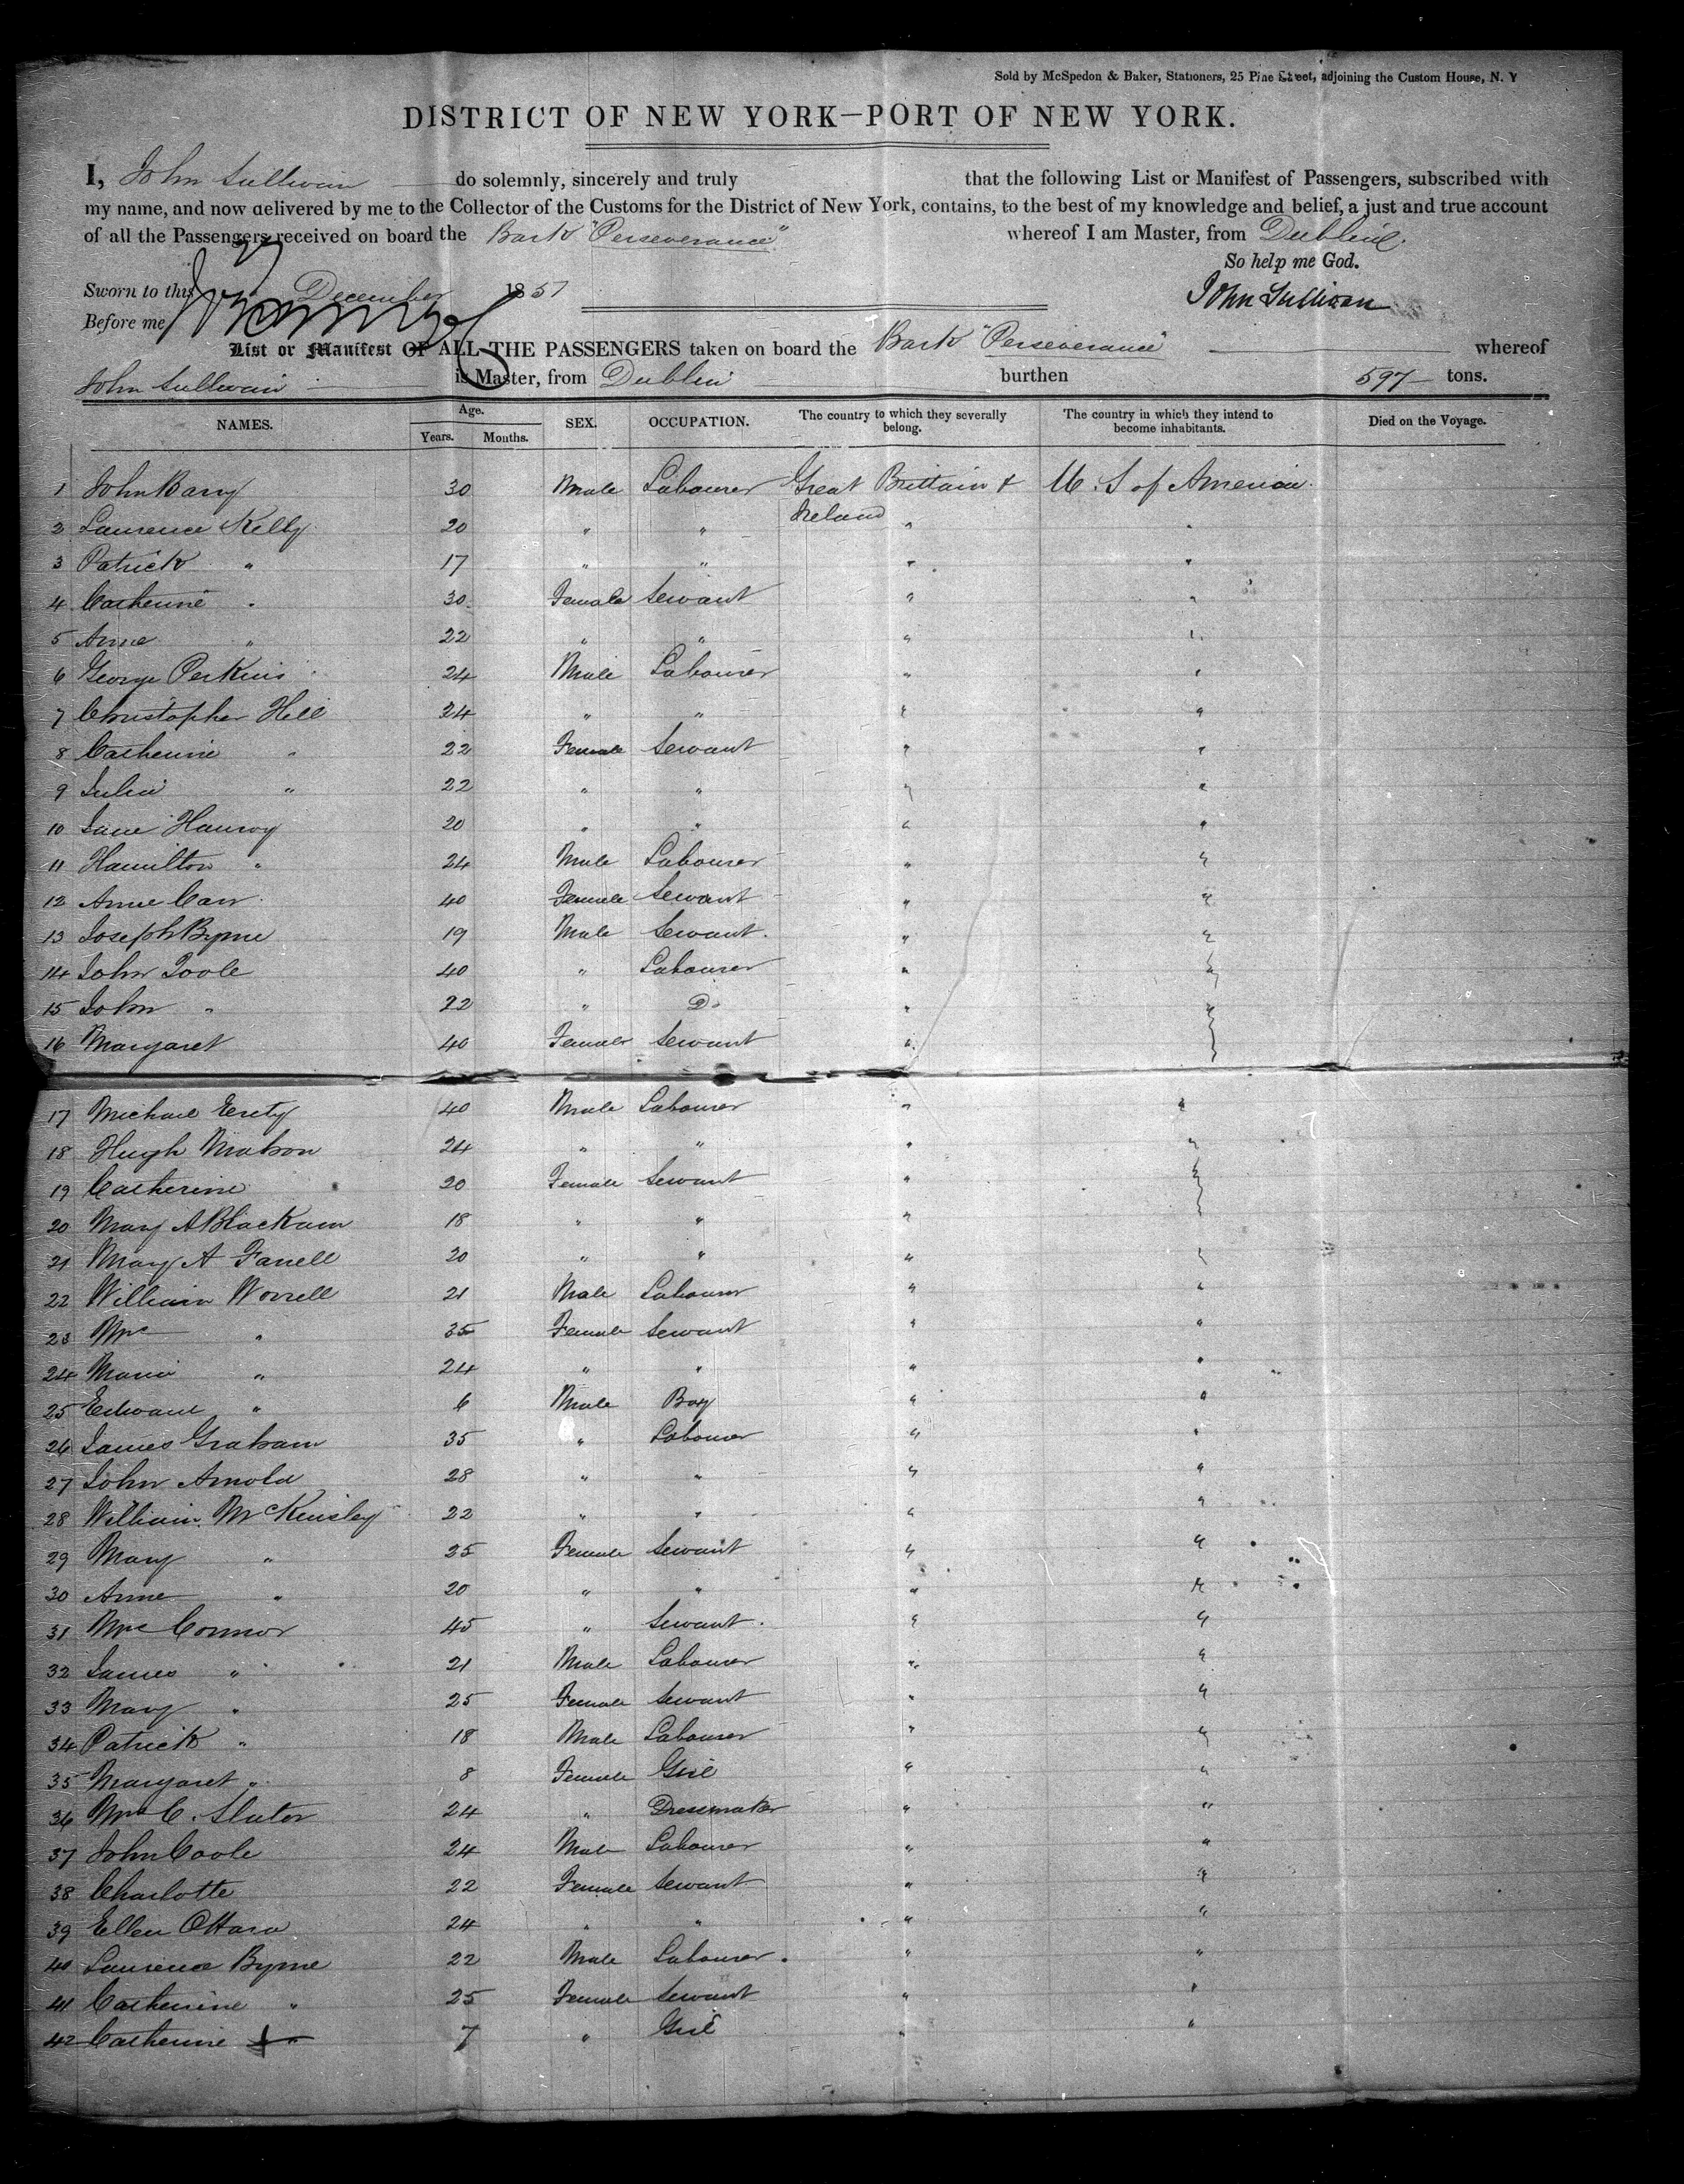 Sold by McSpedon & Baker, Stationers, 25 Pine Street, adjoining the Custom House, N. Y
DISTRICT OF NEW YORK—PORT OF NEW YORK.
I, John Sullivan do solemnly, sincerely and truly that the following List or Manifest of Passengers, subscribed with
my name, and now delivered by me to the Collector of the Customs for the District of New York, contains, to the best of my knowledge and belief, a just and true account
of all the Passengers received on board the Bark "Perseverance" whereof I am Master, from Dublin
So help me God.
Sworn to this December 1851
John Sullivan
Before me
List or Manifest OF ALL THE PASSENGERS taken on board the Bark "Perseverance" whereof
John Sullivan is Master, from Dublin burthen 597 tons.
NAMES. Age. Years. Months. SEX. OCCUPATION. The country to which they severally belong. The country in which they intend to become inhabitants. Died on the Voyage.
1 John Barry 30 Male Labourer Great Brittain & Ireland U. S of America
2 Laurence Kelly 20 " " " "
3 Patrick " 17 " " " "
4 Catherine " 30 Female Servant " "
5 Anne " 22 " " " "
6 George Perkins 24 Male Labourer " "
7 Christopher Hill 24 " " " "
8 Catherine " 22 Female Servant " "
9 Julia " 22 " " " "
10 Jane Hanroy 20 " " " "
11 Hamilton " 24 Male Labourer " "
12 Anne Carr 40 Female Servant " "
13 Joseph Byrne 19 Male Servant. " "
14 John Toole 40 " Labourer " "
15 John " 22 " Do " "
16 Margaret 40 Female Servant " "
17 Michael 40 Male Labourer " "
18 Hugh Mahon 24 " " " "
19 Catherine 20 Female Servant " "
20 Mary A Blackam 18 " " " "
21 Mary A Farrell 20 " " " "
22 William Worrell 21 Male Labourer " "
23 Mrs " 35 Female Servant " "
24 Maria " 24 " " " "
25 Edward " 6 Male Boy " "
26 James Graham 35 " Labourer " "
27 John Arnold 28 " " " "
28 William McKinsley 22 " " " "
29 Mary " 25 Female Servant " "
30 Anne " 20 " " " "
31 Mrs Connor 45 " Servant. " "
32 James " 21 Male Labourer " "
33 Mary " 25 Female Servant " "
34 Patrick " 18 Male Labourer " "
35 Margaret " 8 Female Girl " "
36 Mrs C. Slator 24 " Dressmaker " "
37 John Coole 24 Male Labourer " "
38 Charlotte 22 Female Servant " "
39 Ellen OHara 24 " " " "
40 Laurence Byrne 22 Male Labourer " "
41 Catherine " 25 Female Servant " "
42 Catherine " 7 " Girl " "